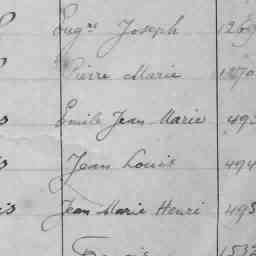 Eugne Joseph 1269
Pierre Marie 1270
s Emile Jean Marie 493
s Jean Louis 494
is Jean Marie Henri 495
1532